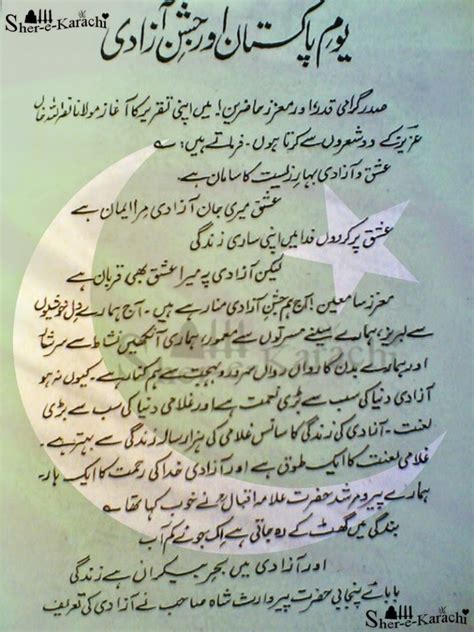 Sher-e-Karachi
یومِ پاکستان اور جشنِ آزادی
صدر گرامی قدر! اور معزز حاضرین! میں اپنی تقریر کا آغاز مولانا نصر اللہ خاں
عزیز کے دو شعروں سے کرتا ہوں۔ فرماتے ہیں: ؎
عشق و آزادی بہارِ زیست کا سامان ہے
عشق میری جان آزادی مرا ایمان ہے
عشق پر کردوں فدا میں اپنی ساری زندگی
لیکن آزادی پہ میرا عشق بھی قربان ہے
معزز سامعین! آج ہم جشنِ آزادی منا رہے ہیں۔ آج ہمارے دل خوشیوں
سے لبریز، ہمارے سینے مسرتوں سے معمور، ہماری آنکھیں نشاط سے سرشار
اور ہمارے بدن کا رواں رواں سرور و بہجت سے ہم کنار ہے۔ کیوں نہ ہو
Karachi
آزادی دنیا کی سب سے بڑی نعمت ہے اور غلامی دنیا کی سب سے بڑی
لعنت۔ آزادی کی زندگی کا سانس غلامی کی ہزار سالہ زندگی سے بہتر ہے۔
غلامی لعنت کا ایک طوق ہے اور آزادی خدا کی رحمت کا ایک ہار۔
ہمارے پیر و مرشد حضرت علامہ اقبالؒ نے خوب کہا تھا ؎
بندگی میں گھٹ کے رہ جاتی ہے اِک جوئے کم آب
اور آزادی میں بحرِ بیکراں ہے زندگی
بابائے پنجابی حضرت پیر وارث شاہ صاحب نے آزادی کی تعریف
Sher-e-Karachi